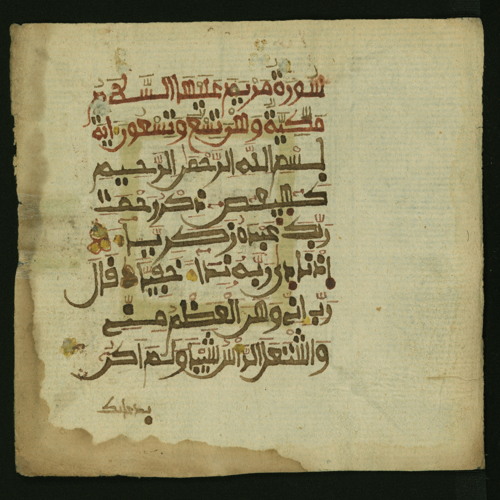 سورة مريم عليها السلام
مكية وهي تسع وتسعون اية
بسم الله الرحمن الرحيم
كهيعص ذكر رحمت
ربك عبده زكريا
اذ نادى ربه نداء خفيا قال
رب اني وهن العظم مني
واشتعل الراس شيبا ولم اكن
بدعايك